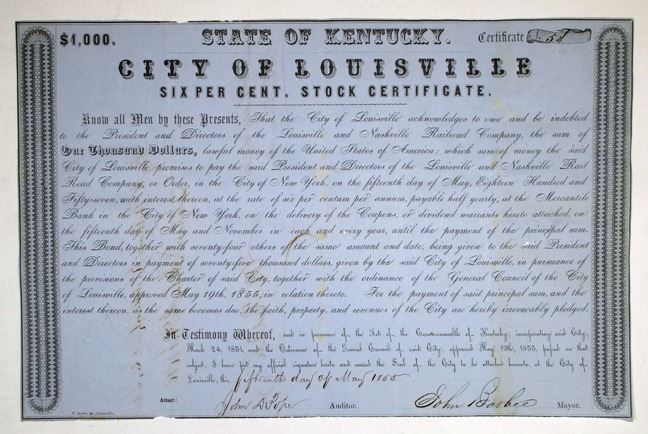 $1,000. STATE OF KENTUCKY. Certificate 51
CITY OF LOUISVILLE
SIX PER CENT. STOCK CERTIFICATE.
Know all Men by these Presents, That the City of Louisville acknowledges to owe and be indebted
to the President and Directors of the Louisville and Nashville Railroad Company, the sum of
One Thousand Dollars, lawful money of the United States of America; which sum of money the said
City of Louisville promises to pay the said President and Directors of the Louisville and Nashville Rail
Road Company, or Order, in the City of New York, on the fifteenth day of May, Eighteen Hundred and
Fifty-seven, with interest thereon, at the rate of six per centum per annum, payable half yearly, at the Mercantile
Bank in the City of New York, on the delivery of the Coupons, or dividend warrants hereto attached, on
the fifteenth day of May and November in each and every year, until the payment of the principal sum.
This Bond, together with seventy-four others of the same amount and date, being given to the said President
and Directors in payment of seventy-five thousand dollars, given by the said City of Louisville, in pursuance of
the provisions of the Charter of said City, together with the ordinance of the General Council of the City
of Louisville, approved May 19th, 1855, in relation thereto. For the payment of said principal sum, and the
interest thereon, as the same becomes due, the faith, property, and revenues of the City are hereby irrevocably pledged.
In Testimony Whereof, and in pursuance of the Act of the Commonwealth of Kentucky, incorporating said City,
March 24, 1851, and the Ordinance of the General Council of said City, approved May 19th, 1855, passed on that
subject, I have put my official signature hereto and caused the Seal of the City to be attached hereto, at the City of
Louisville, this fifteenth day of May 1855
Attest: John D Pope Auditor. John Barbee Mayor.